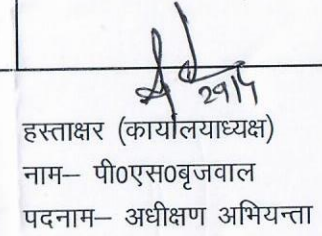 29/4
हस्ताक्षर (कार्यालयाध्यक्ष)
नाम– पी0एस0बृजवाल
पदनाम– अधीक्षण अभियन्ता